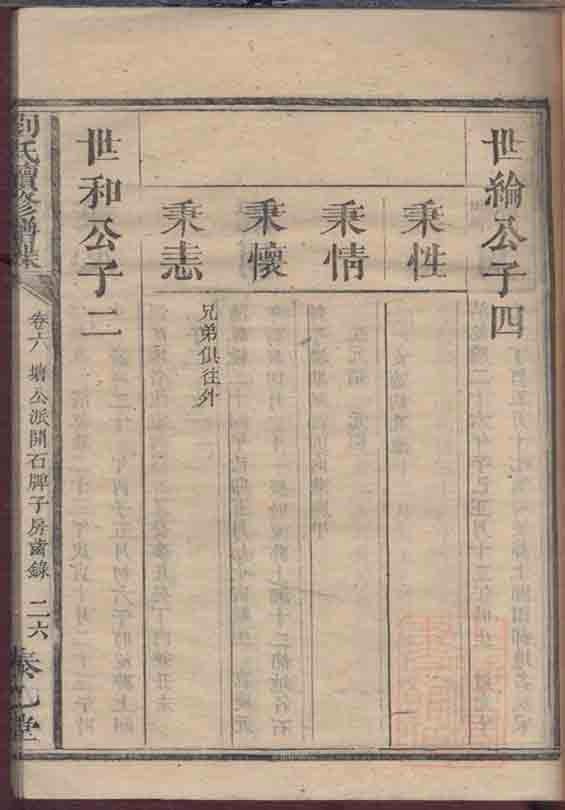 世綸公子四
秉性
秉情
秉懷
秉志
兄弟俱往外
世和公子二
劉氏續修譜
卷六 塘公派開石牌子房齒錄 二六
堂